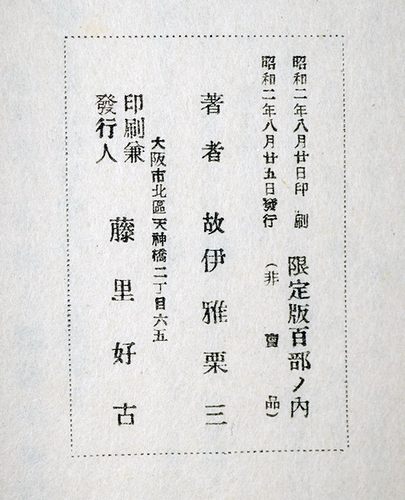 昭和二年八月廿日印刷 限定版百部ノ內
昭和二年八月廿五日發行 (非賣品)
著者 故伊雅栗三
大阪市北區天神橋二丁目六五
印刷兼
發行人 藤里好古